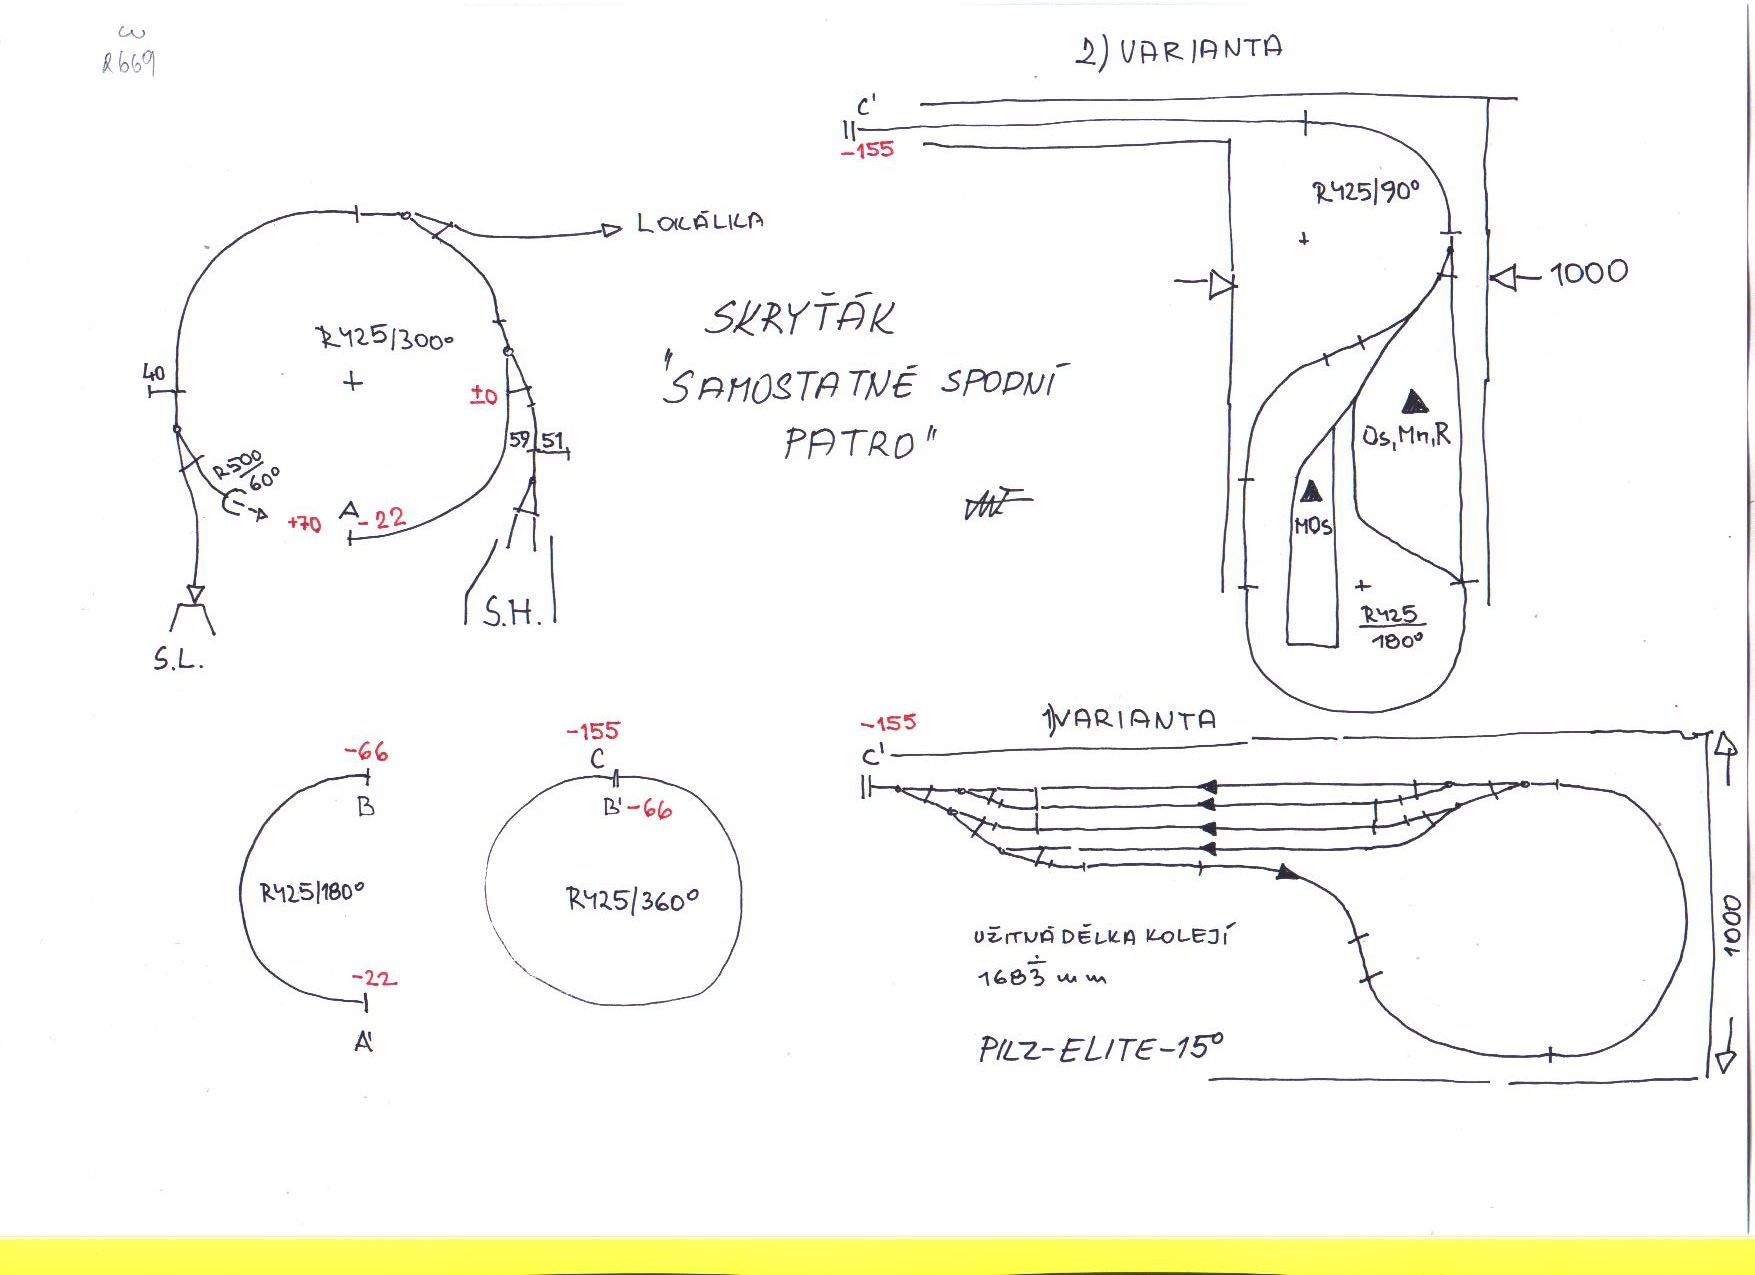 R669
2) VARIANTA
C'
-155
R425/90°
LOKÁLKA
1000
R425/300°
SKRYŤÁK
"SAMOSTATNÉ SPODNÍ
PATRO"
40
±0
59 51
Os,Mn,R
R500/60°
+70
A -22
MOs
S.H.
R425/180°
S.L.
-155
1)VARIANTA
C'
-66
B
-155
C
B' -66
R425/180°
R425/360°
-22
A'
UŽITNÁ DÉLKA KOLEJÍ
1683 mm
PILZ-ELITE-15°
1000